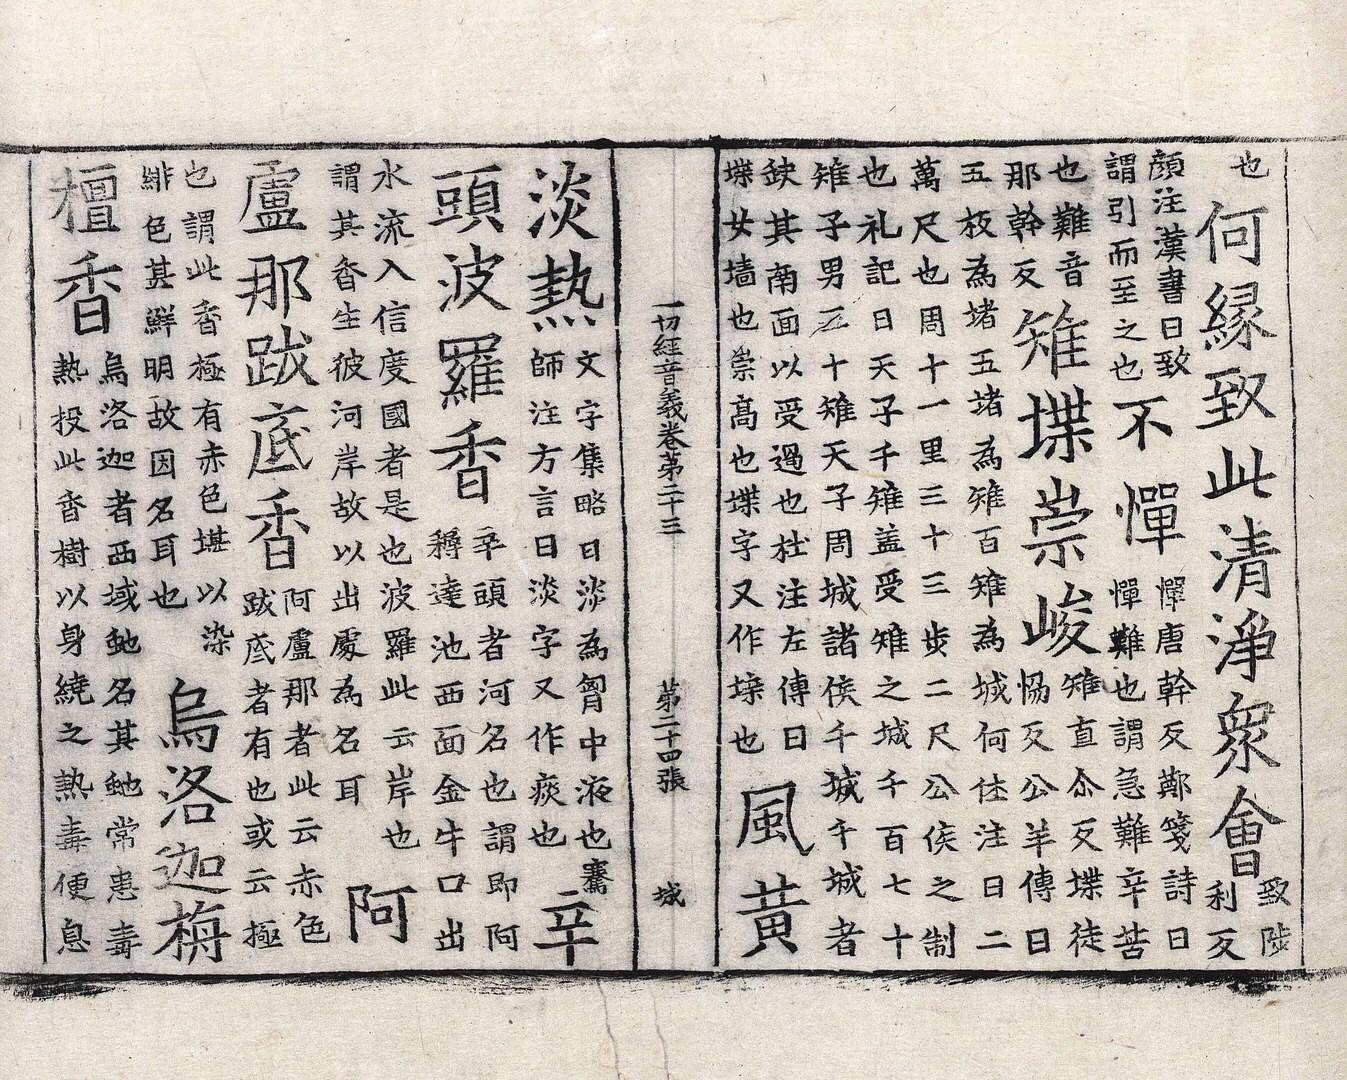 也何縁致此清淨衆會致陟利反
顔注漢書曰致謂引而至之也不憚憚唐幹反鄭箋詩曰憚難也謂急難辛苦
也難音那幹反雉堞崇峻雉直尒反堞徒恊反公羊傳曰
五板為堵五堵為雉百雉為城何休注曰二萬尺也周十一里三十三步二尺公侯之制
也礼記曰天子千雉盖受雉之城千百七十雉子男五十雉天子周城諸侯千城千城者
缺其南面以受過也杜注左傳曰堞女墻也崇高也堞字又作㙞也風黄
一切經音義卷第二十三 第二十四張 城
淡熱文字集略曰淡為胷中液也騫師注方言曰淡字又作痰也辛
頭波羅香辛頭者河名也謂即阿耨達池西面金牛口出
水流入信度國者是也波羅此云岸也謂其香生彼河岸故以出處為名耳阿
盧那跋底香阿盧那者此云赤色跋底者有也或云極
也謂此香極有赤色堪以染緋色甚鮮明故因名耳也烏洛迦栴
檀香烏洛迦者西域虵名其虵常患毒熱投此香樹以身繞之熱毒便息